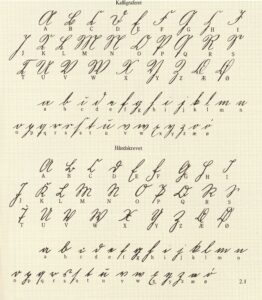 Kalligraferet
A B C D E F G H I
J K L M N O P Q R S
T U V W X Y Z Æ Ø
a b c d e f g h i j k l m n
o p q r s t u v w x y z æ ø
Håndskrevet
A B C D E F G H I
J K L M N O P Q R S
T U V W X Y Z Æ Ø
a b c d e f g h i j k l m n
o p q r s t u v w x y z æ ø